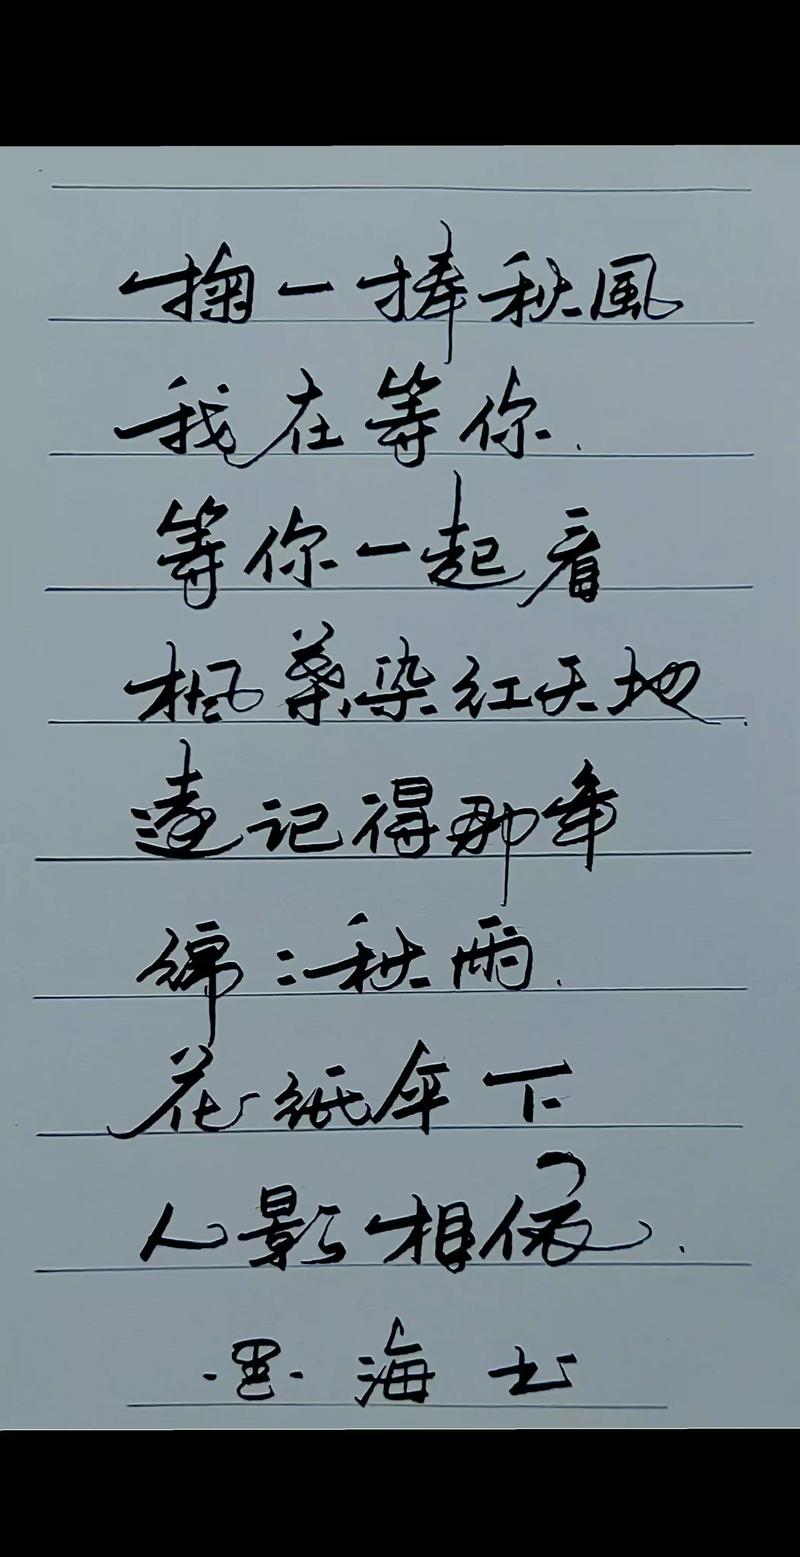 掬一捧秋風
我在等你.
等你一起看
楓葉染红天地.
還记得那年
绵::秋雨.
花纸伞下
人影相依.
墨海书